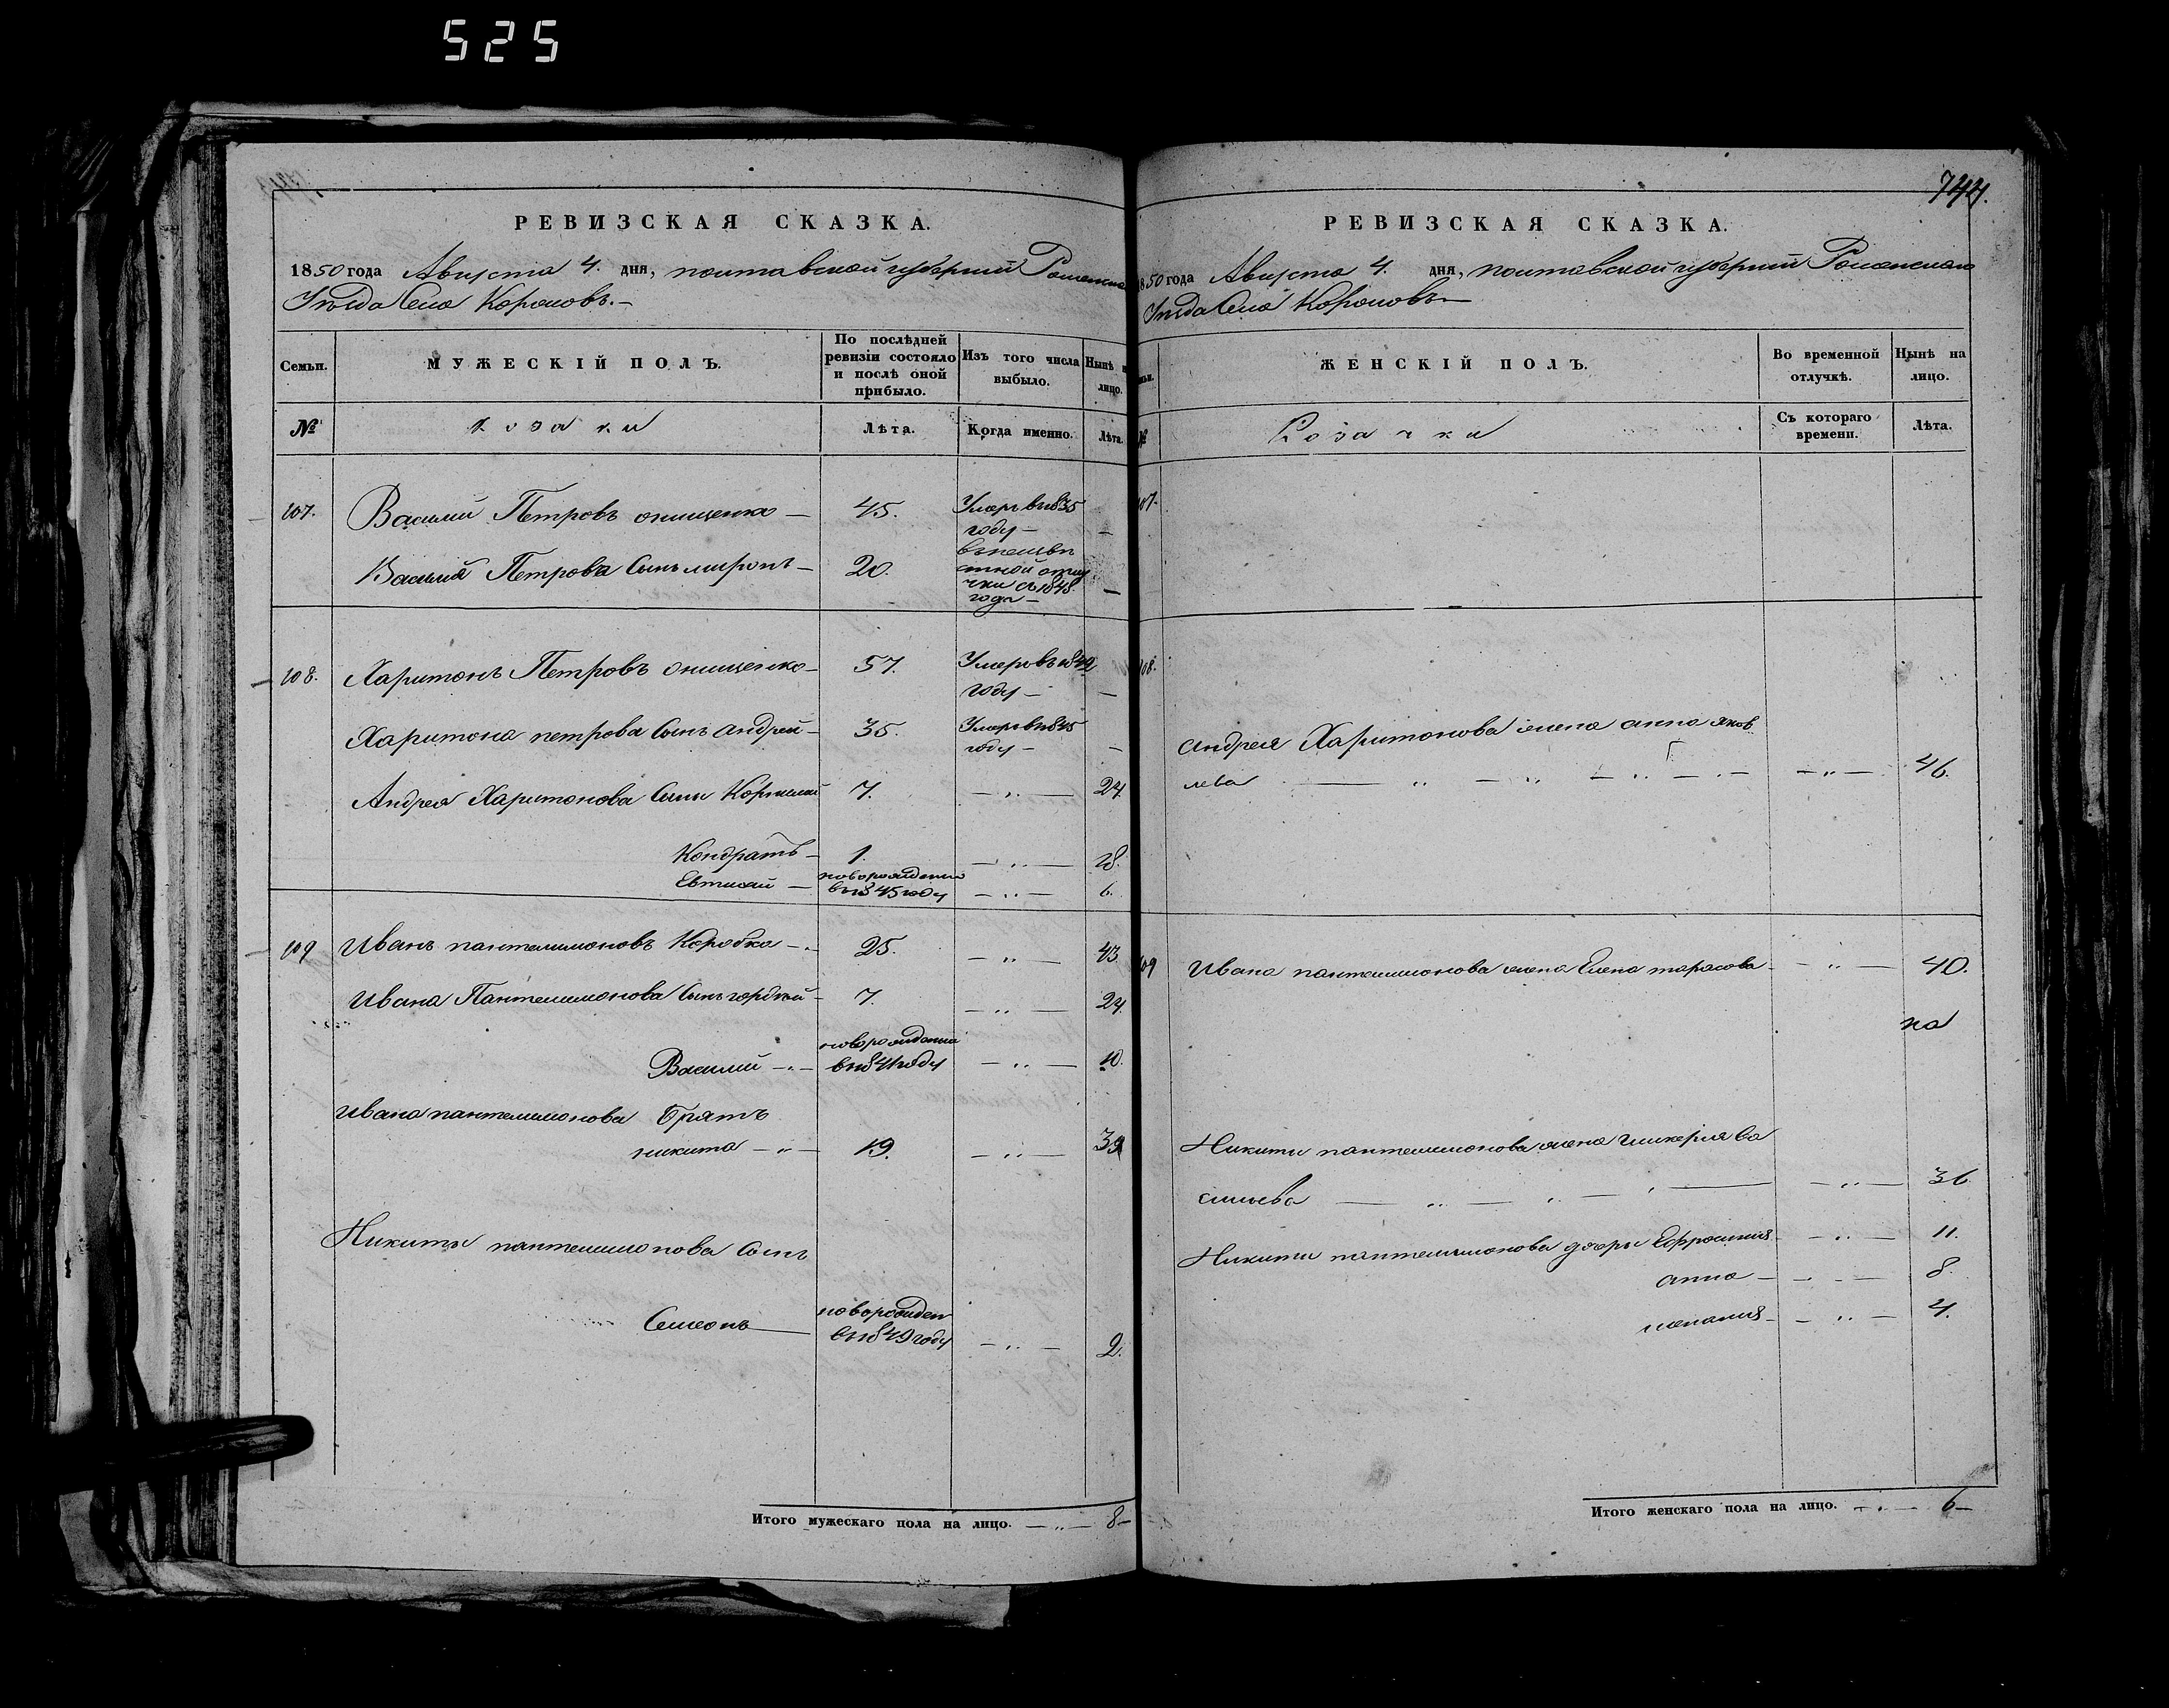 525
РЕВИЗСКАЯ СКАЗКА.
1850 года Августа 4. дня, полтавской губернии Роменска
Уѣзда Села Корововъ.—
Семьи.
МУЖЕСКІЙ ПОЛЪ.
По послѣдней ревизіи состояло и послѣ оной прибыло.
Изъ того числа выбыло.
Нынѣ н лицо.
№
козаки
Лѣта.
Когда именно.
Лѣта.
107. Василий Петровъ онищенко — 45. Умеръ в 1835
году — —
Василия Петрова Сынъ миронъ — 20. въ неизвѣ
стной отлу
чки съ 1848
года — —
108. Харитонъ Петровъ онищенко — 57. Умеръ въ 1842
году — —
Харитона петрова Сынъ андрей — 35. Умеръ в 1845
году — —
Андрея Харитонова Сыны Корнилий 7. — „ — 24.
Кондратъ — 1. — „ — 18.
Евтихий — новорожденны
въ 1845 году — „ — 6.
109 Иванъ пантелимоновъ Коробка — „ 25. — „ — 43.
Ивана Пантелимонова Сынъ гордѣй — 7. — „ — 24.
Василий — „ — новорожденны
в 1841 году — „ — 10.
Ивана пантелимонова Братъ
никита — „ — 19. — „ — 39
Никиты пантелимонова Сынъ
Семенъ — новорожден
в 1849 году — „ — 2.
Итого мужескаго пола на лицо. — „ — 8 —
744.
РЕВИЗСКАЯ СКАЗКА.
1850 года Августа 4. дня, полтавской губернии Роменскаго
Уѣзда Села
ЖЕНСКІЙ ПОЛЪ.
Во временной отлучкѣ.
Нынѣ на лицо.
№
Козачки
Съ котораго времени.
Лѣта.
107.
108.
андрея Харитонова жена анна яков
лева — „ — „ — „ — „ — 46.
109 Ивана пантелимонова жена Елена тарасова — „ — 40.
на
Никиты пантелимонова жена гликерия ва
сильева — „ — „ — „ — 36
Никиты пантелимонова дочери Ефросиния — „ — 11.
анна — „ — 8.
мелания — „ — 4.
Итого женскаго пола на лицо. — „ — 6 —